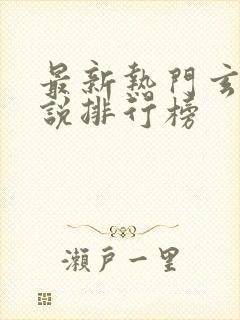 最新熱門玄
說排行榜
瀨戶一里